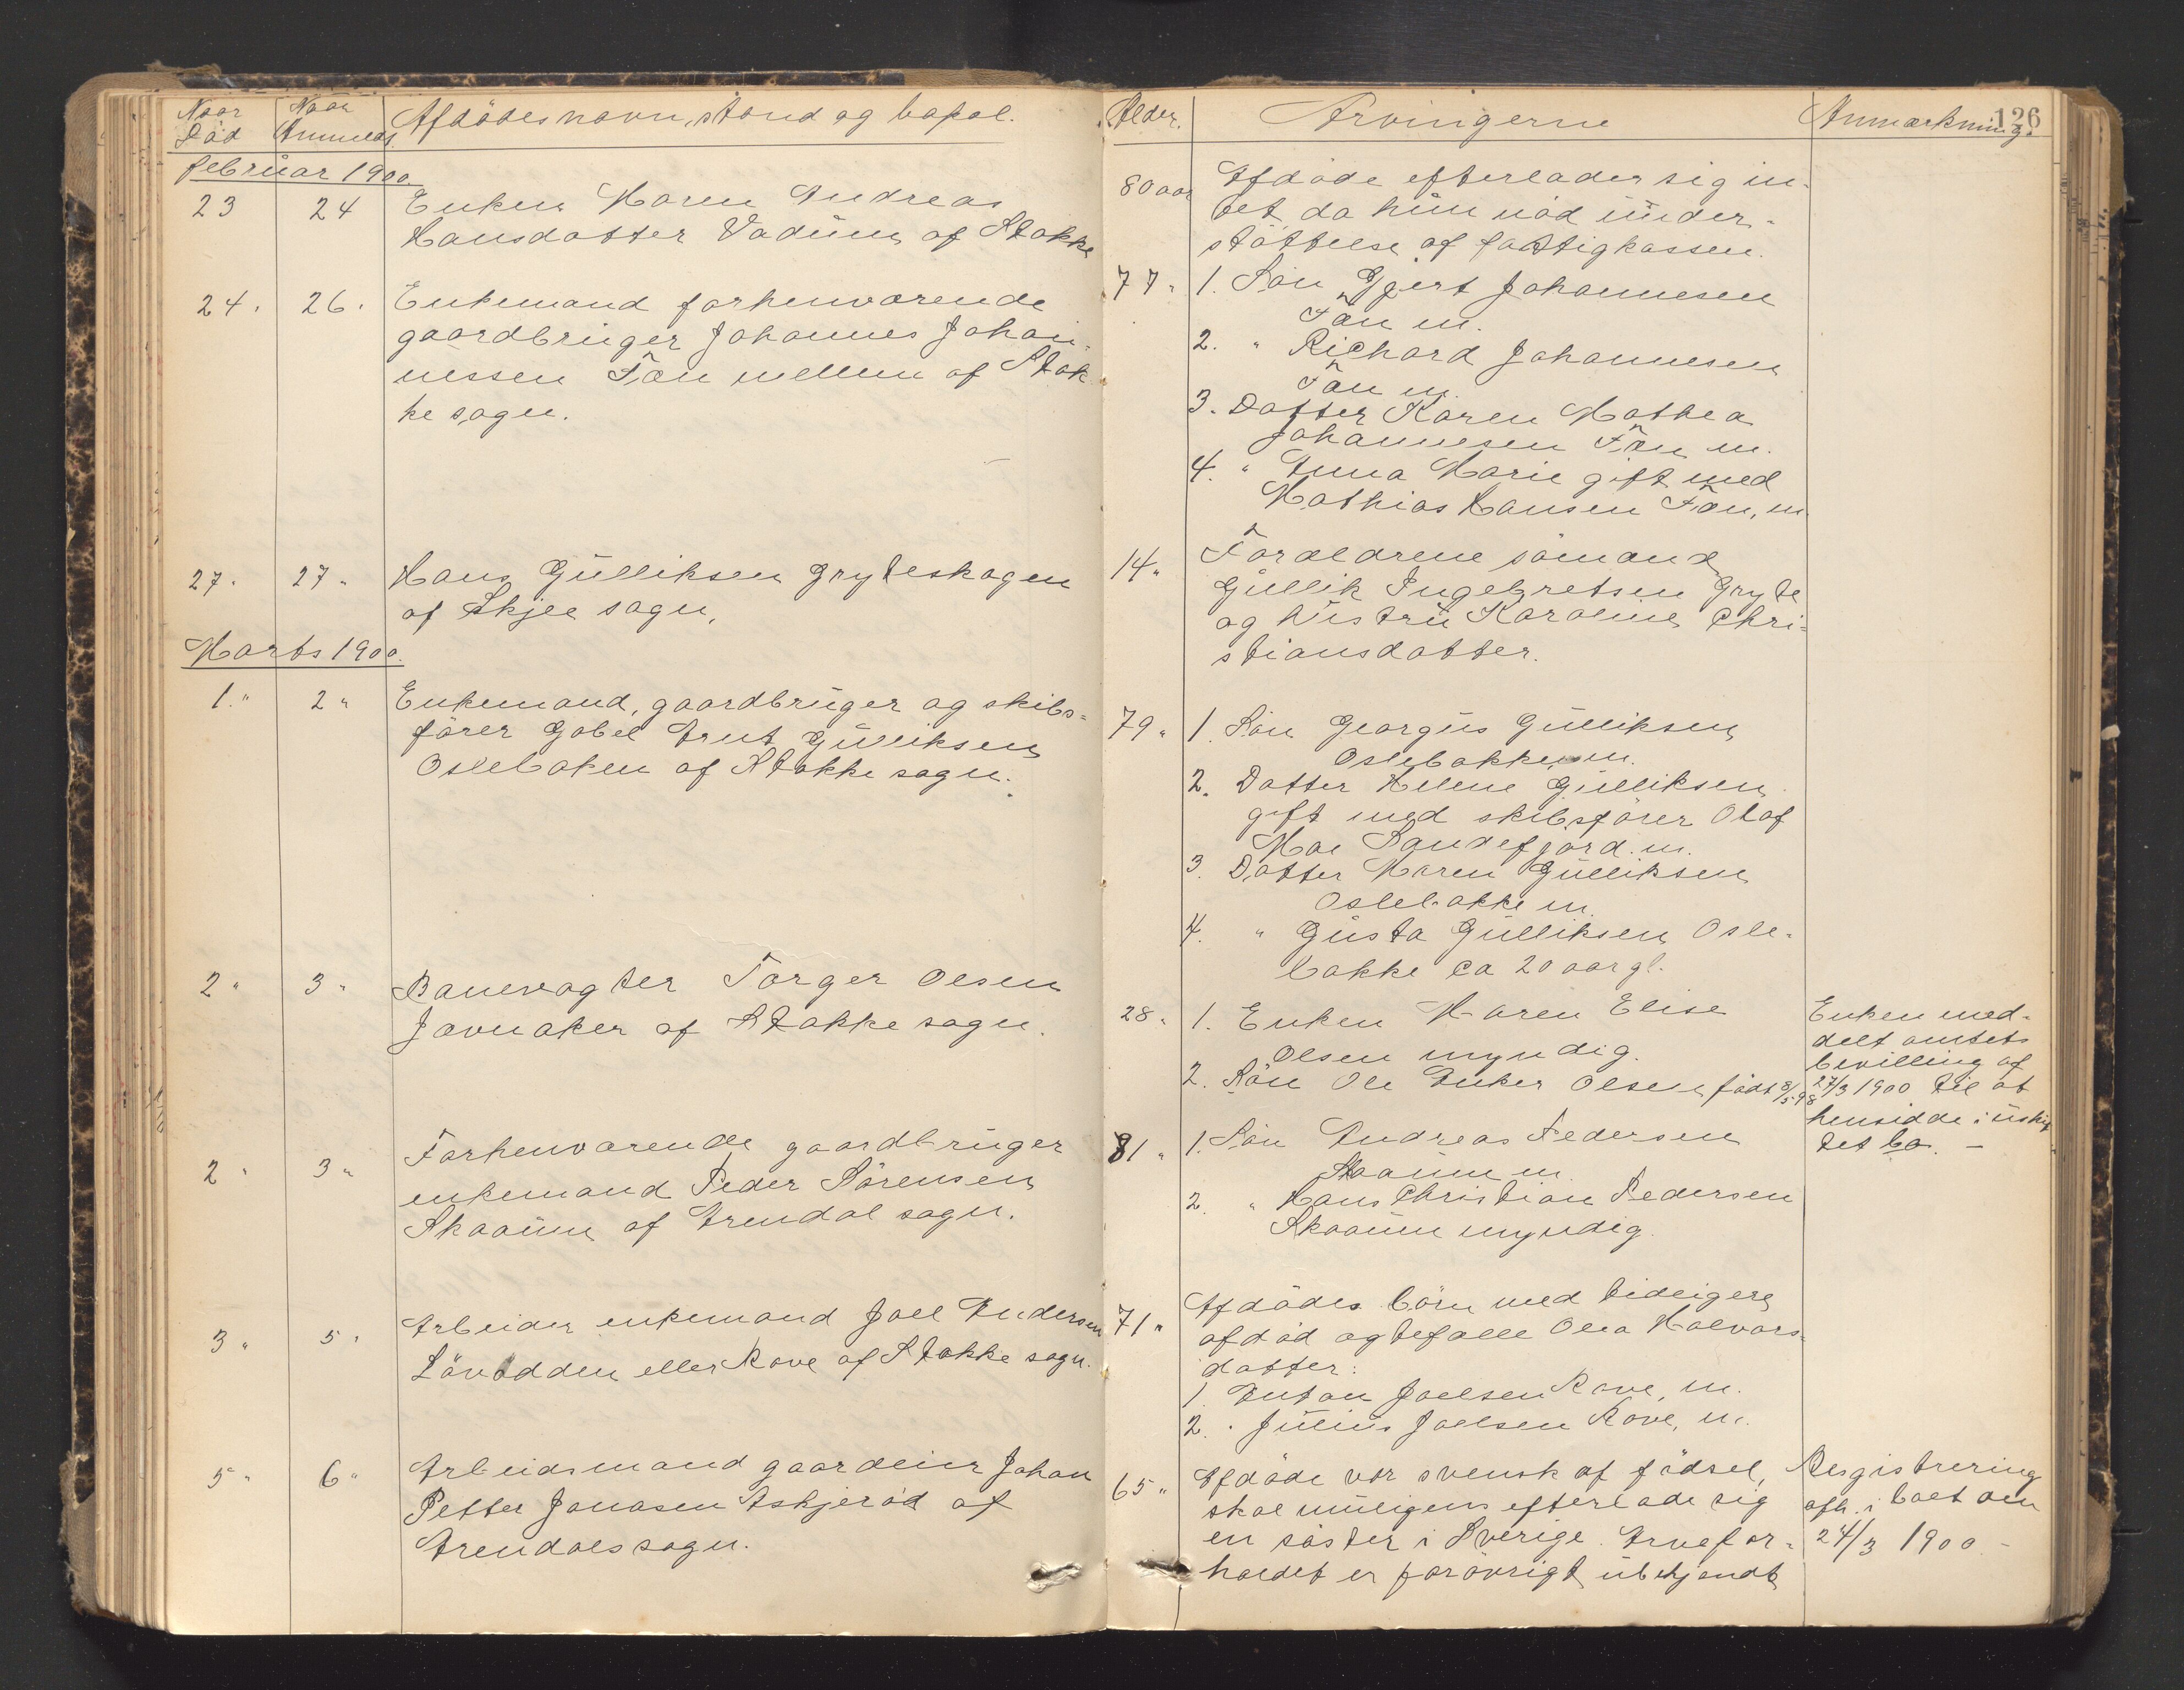 Naar Død
Naar Anmeldt.
Afdødes navn, stand og bopæl.
februar 1900
23 24 Enken Maren Andrea
Hansdatter Vadum af Stokke
24. 26. Enkemand forhenværende
gaardbruger Johannes Johan-
nessen Fæn mellem af Stok-
ke sogn.
27. 27 " Hans Gulliksen Gryteskogen
af Skjee sogn,
Marts 1900.
1. " 2 " Enkemand, gaardbruger og skibs-
fører Gabel Arnt Gulliksen
Oslebaken af Stokke sogn.
2 " 3 " Banevogter Torger Olsen
Javnaker af Stokke sogn.
2 " 3 " Forhenværende gaardbruger
enkemand Peder Sørensen
Skaaum af Arendal sogn.
3 " 5 " Arbeider enkemand Joel Andersen
Løvodden eller Rove af Stokke sogn.
5 " 6 " Arbeidsmand gaardeier Johan
Petter Jonasen Askjerød af
Arendals sogn.
Alder.
Arvingerne
Anmærkning.
126
80 aar Afdøde efterlader sig in-
tet da hun nød under-
støttelse af fattigkassen.
77 " 1. Søn Gjert Johannesen
Fæn m.
2. " Richard Johannesen
Fæn m.
3. Datter Karen Mathea
Johannesen Fæn m.
4. " Anna Marie gift med
Mathias Hansen Fæn, m.
14 " Forældrene sømand
Gullik Ingebretsen Gryte
og hustru Karoline Chri-
stiansdatter.
79 " 1. Søn Georgus Gulliksen
Oslebakke m.
2. Datter Helene Gulliksen
gift med skibsfører Olaf
Moe Sandefjord. m.
3. Datter Maren Gulliksen
Oslebakke m.
4. " Gusta Gulliksen Osle-
bakke ca 20 aar gl.
28 " 1. Enken Maren Elise
Olsen myndig.
2. Søn Ole Anker Olsen født 8/5 98
Enken med-
delt amtets
bevilling af
27/3 1900 til at
hensidde i uskif-
tet bo. -
81 " 1. Søn Andreas Pedersen
Skaaum m.
2. " Hans Christian Pedersen
Skaaum myndig.
71 " Afdødes børn med tidligere
afdød ægtefælle Olea Halvors-
datter:
1. Anton Joelsen Rove, m.
2. " Julius Joelsen Rove, m.
65 " Afdøde var svensk af fødsel,
skal muligens efterlade sig
en søster i Sverige. Arvefor-
holdet er forøvrigt ubekjendt
Registrering
afh. i boet den
24/3 1900 -